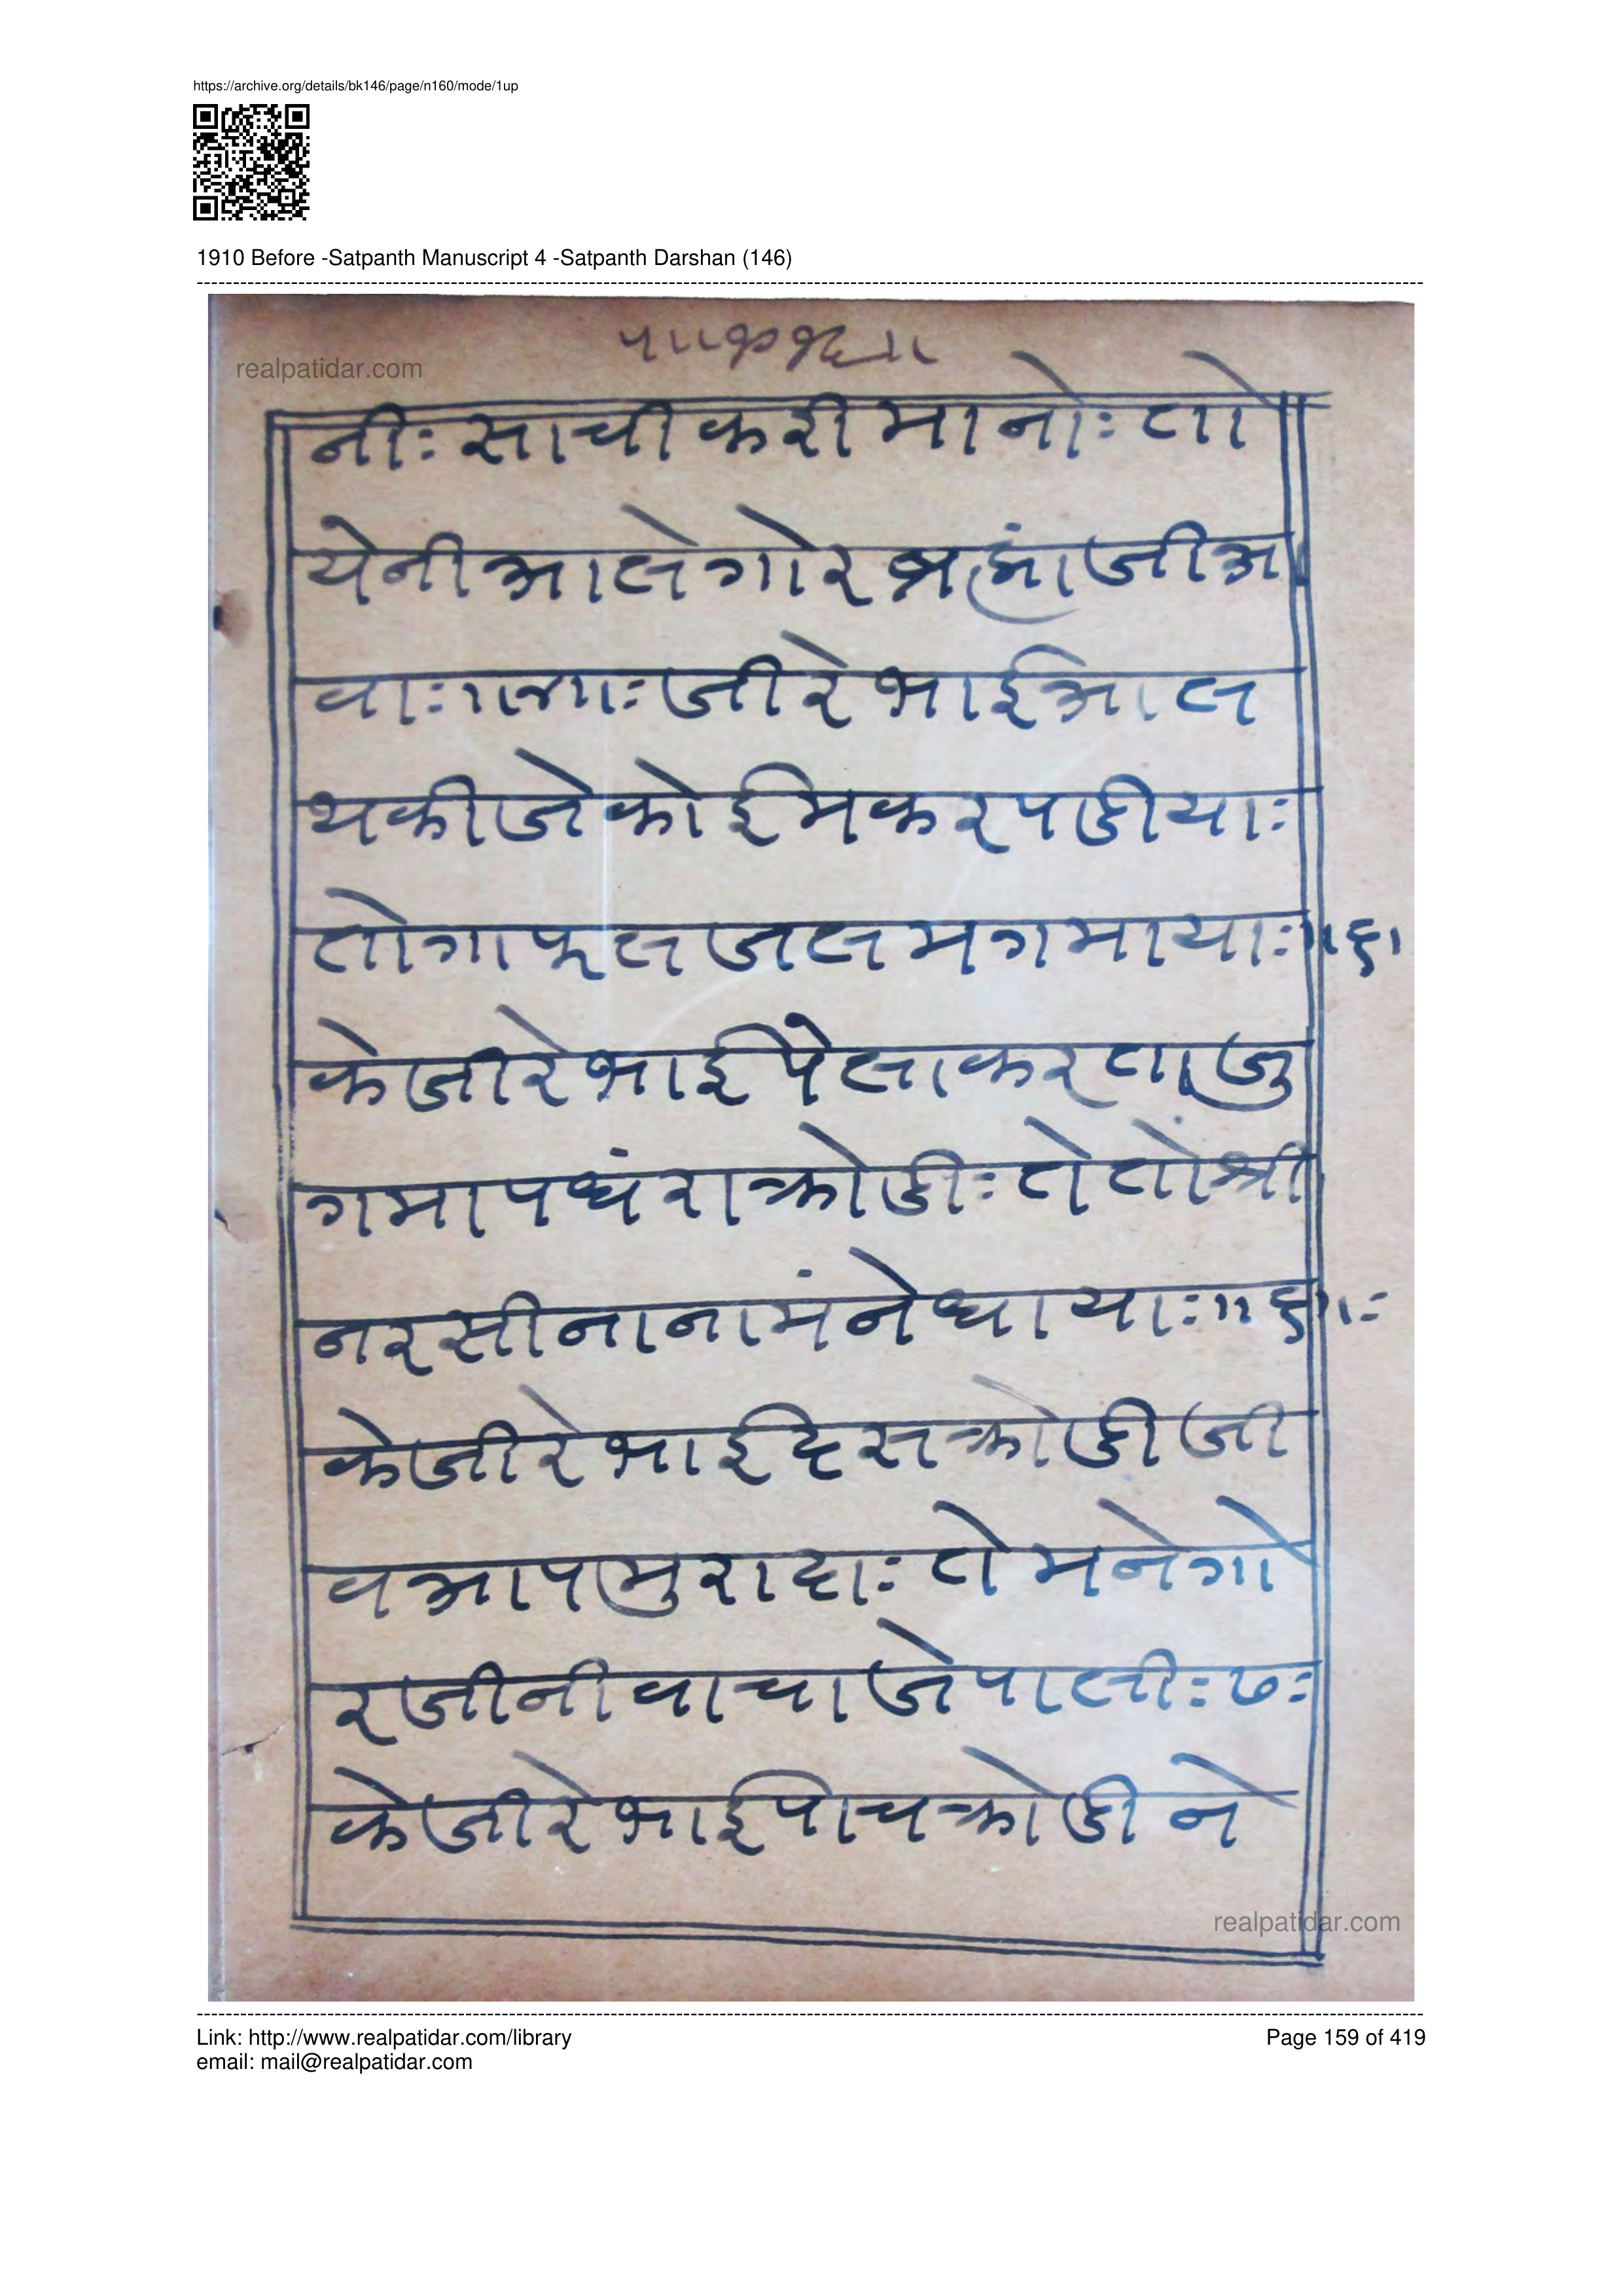 https://archive.org/details/bk146/page/n160/mode/1up
1910 Before -Satpanth Manuscript 4 -Satpanth Darshan (146)
realpatidar.com
नीः साची करी मानोः तो
येनी आले गोर ब्रह्मां जी अ
वाः ॥४॥ः जी रे भाई आल
थकी जे कोई मकर पडीया:
तो गाफल जलम गमाया: ॥६॥
के जी रे भाई पेला करता जु
गमा पधंरा क्रोडीः ते तो श्री
नरसीना नामंने धायाः ॥६॥:
के जी रे भाई दस क्रोडी जी
व आप मुरादाः ते मने गो
रजीनी वाचा जे पालीः ७:
के जी रे भाई पाच क्रोडी ने
realpatidar.com
Link: http://www.realpatidar.com/library
Page 159 of 419
email: mail@realpatidar.com